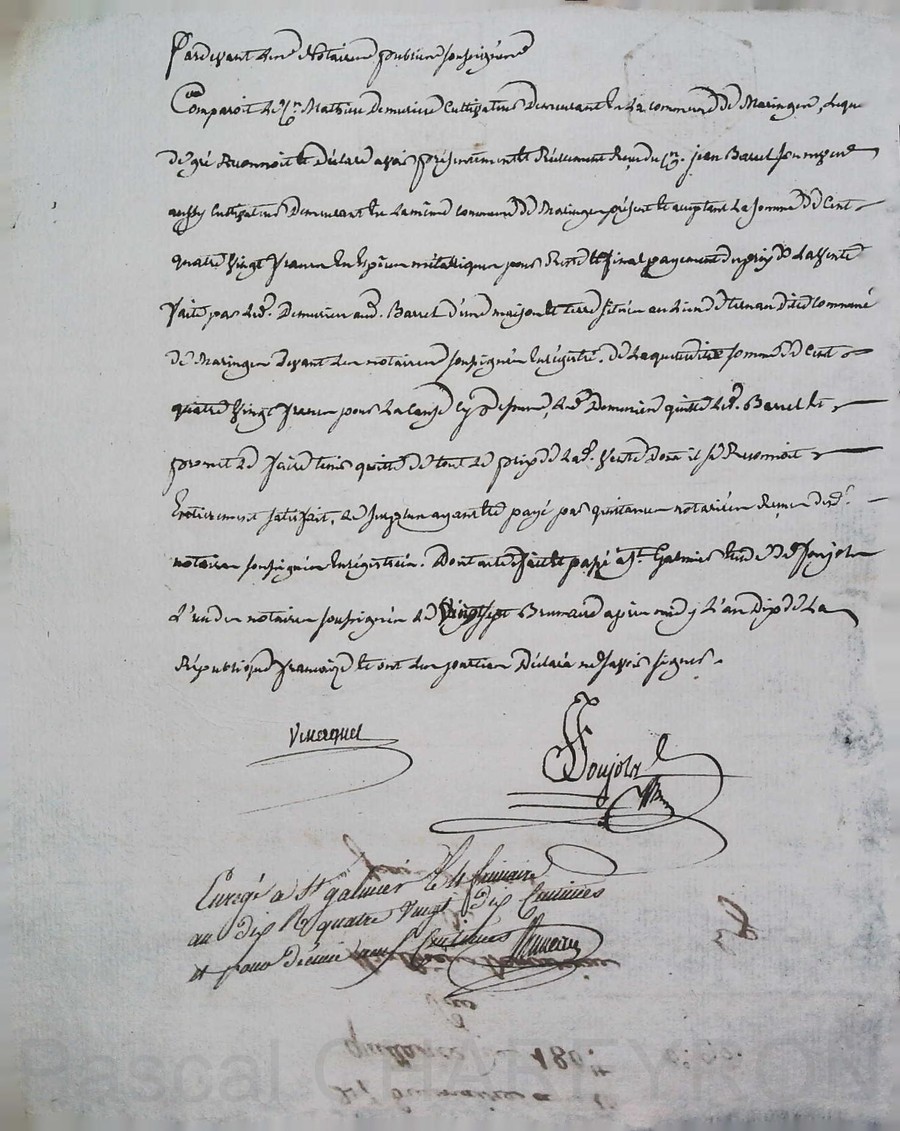 Pardevant Les Notaires publics soussignés
Comparoit Le Cn. Mathieu Demurier Cultivateur Demeurant En La commune De Maringes, Lequel
De gré Reconnoit Et Déclare avoir présentement Et Réelement Reçu du Cn. jean Barrel
aussy Cultivateur Demeurant En La même commune De Maringes présent Et acceptant La somme De Cent
quatre Vingt francs En Espèces métaliques pour Reste Et final payement du prix De La Vente
faite par Led. Demurier aud. Barrel D'une maison Et terre située au Lieu De dite Commune
De Maringes Devant Les notaires soussignés Enregistré. De Laquelle somme De Cent
quatre Vingt francs pour La Cause Cy Dessus, Led. Demurier quitte Led. Barrel Et
promet Le faire tenir quitte De tout Le prix De Lad. Vente Dont il se Reconnoit
Entierement satisfait, Le surplus ayant Eté payé par quittances notariées Reçues Desd.
notaires soussignés Enregistrées. Dont acte fait Et passé à St. Galmier Etude De Soujols
L'un des notaires soussignés Le Vingt sept Brumaire après midy L'an Dix De La
République française Et ont Les parties Déclaré ne savoir signer.
Soujols
Enregé a St galmier le 4 frimaire
an Dix R quatre Vingt Dix Centimes
et pour Décime neuf Centimes
quittance 180
Pascal CHAREYRON